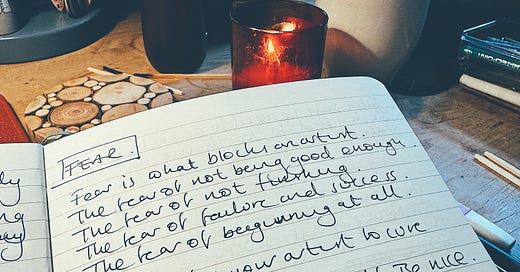 FEAR.
Fear is what blocks an artist.
The fear of not being good enough.
The fear of not finishing.
The fear of failure and success.
The fear of beginning at all.
artist to cure
Be nice.
ly
ng